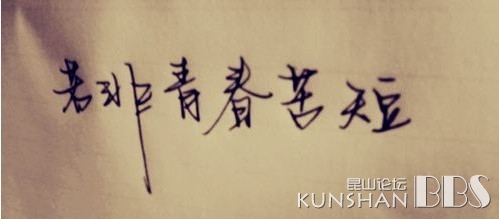 若非青春苦短
昆山论坛
KUNSHAN BBS